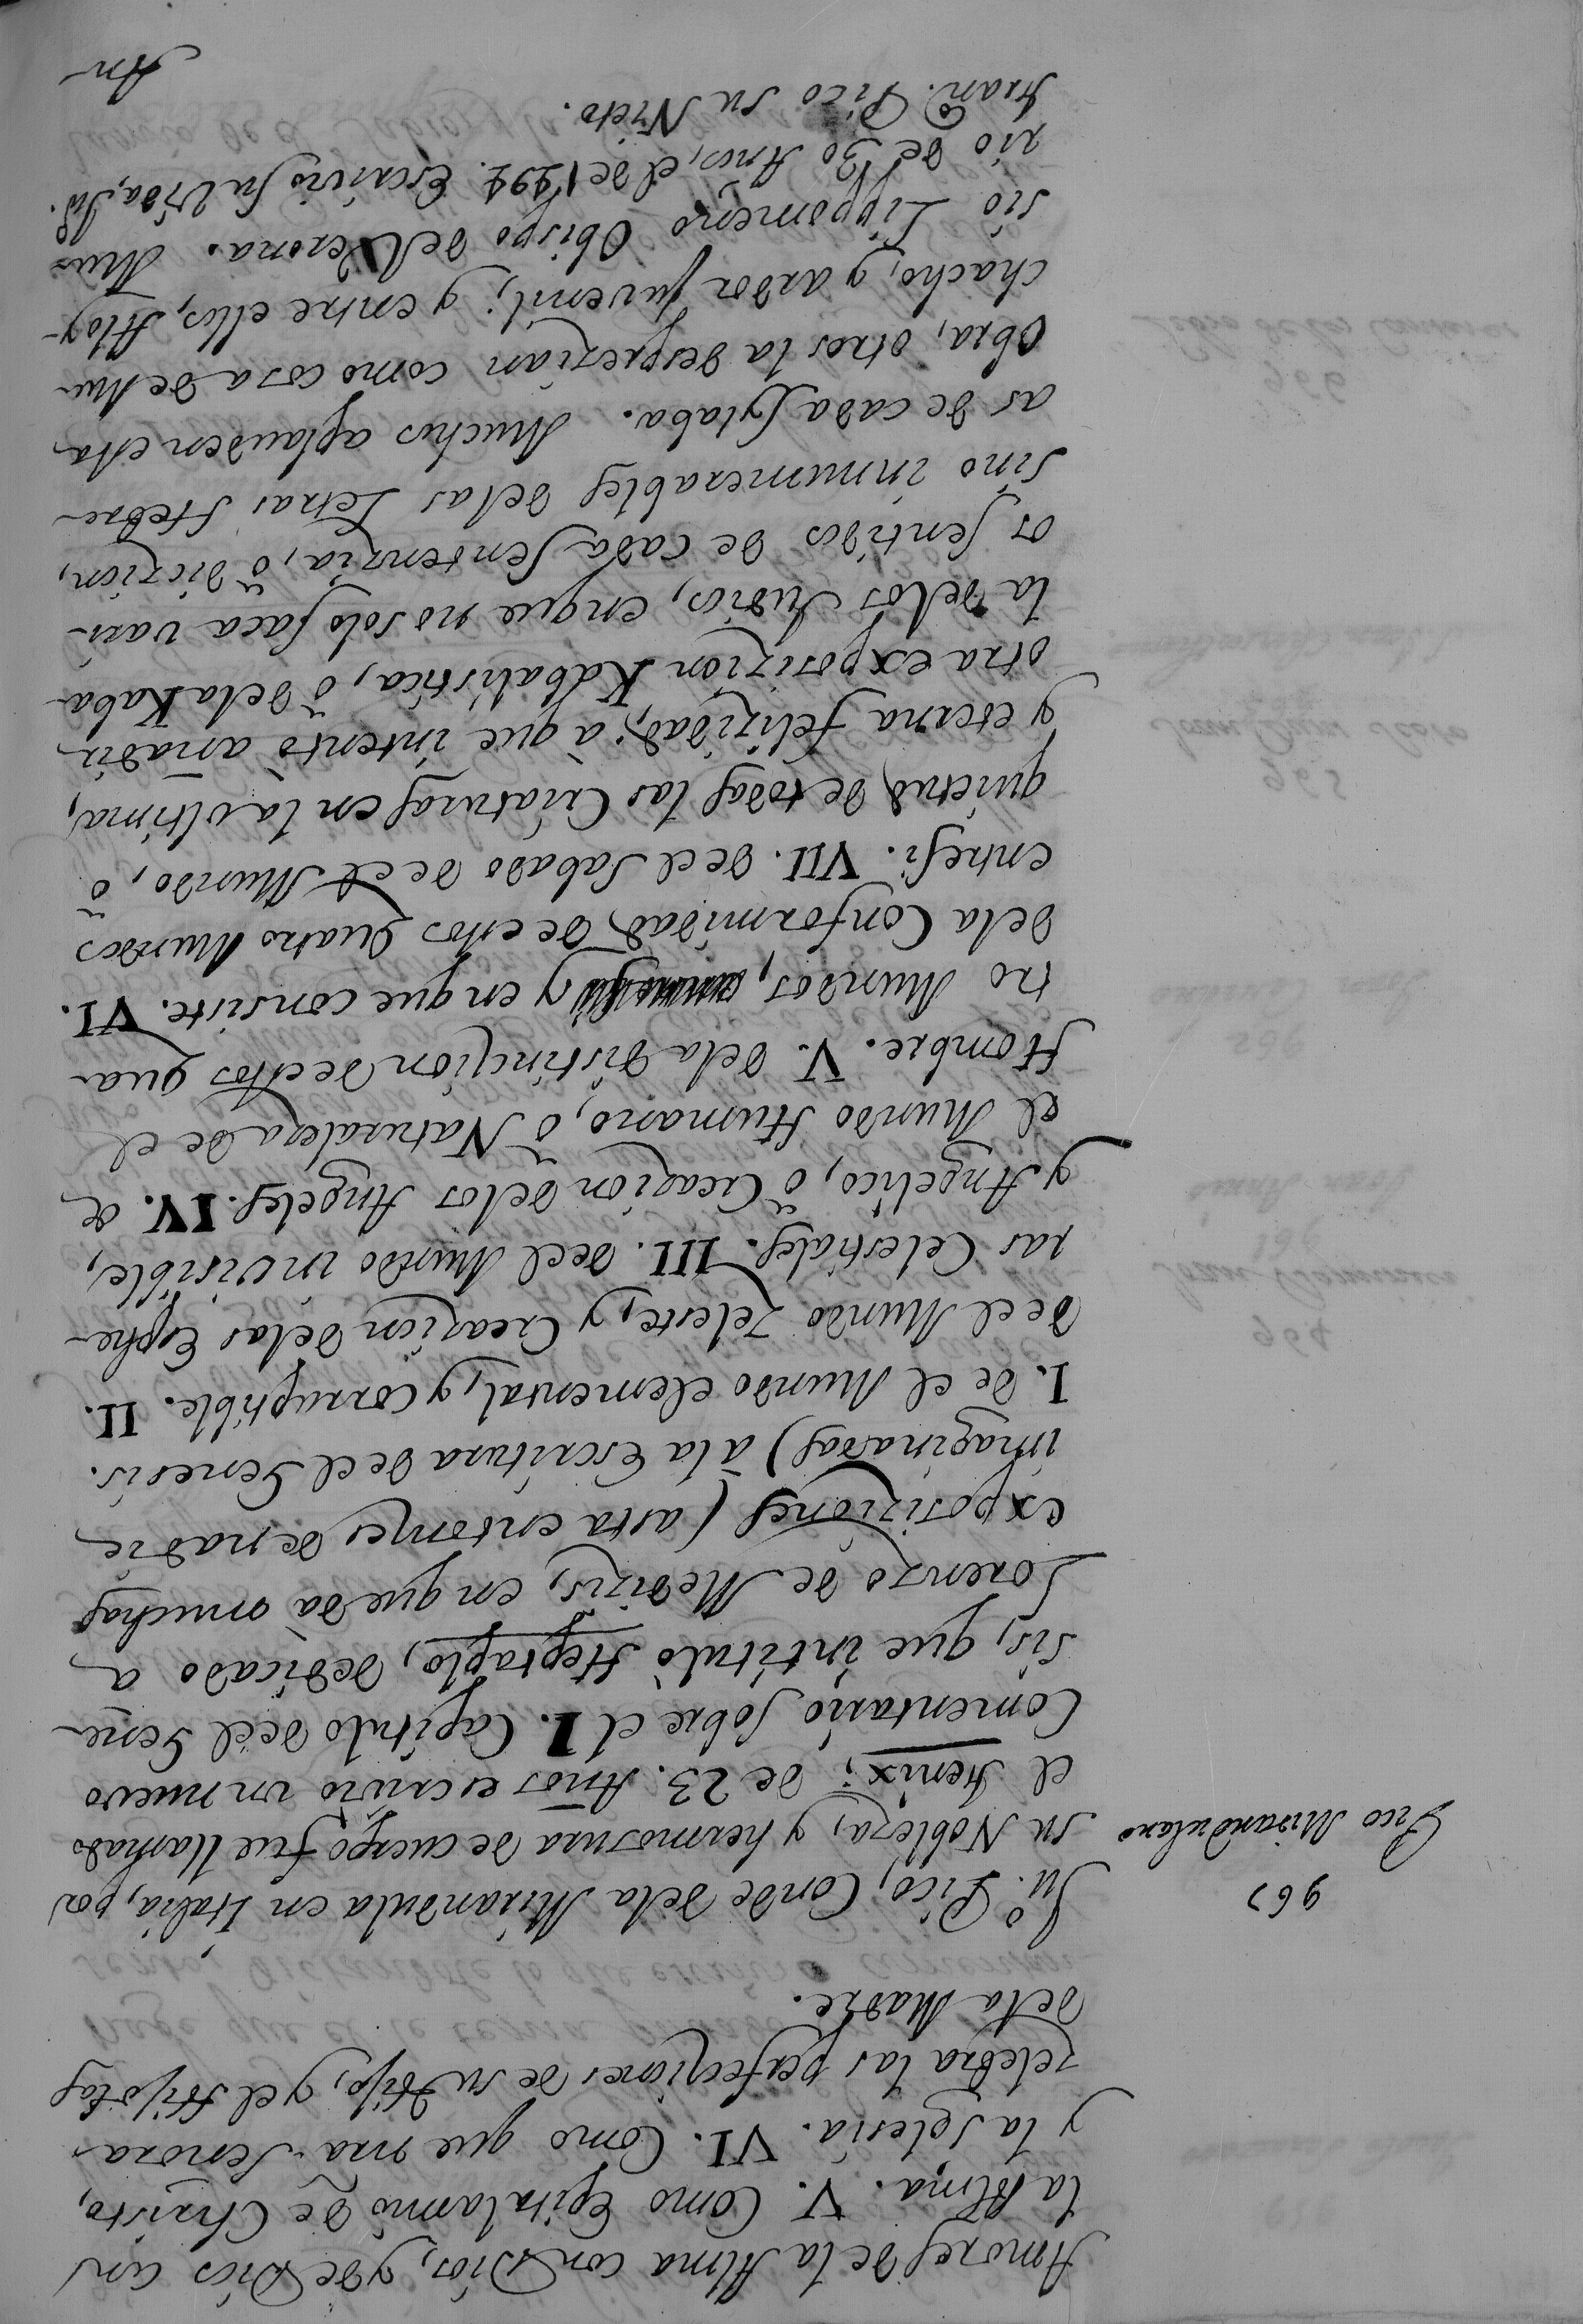 Amores de la Alma con Dios, y de Dios con
la Alma. V. Como Epitalamio de Christo,
y la Iglesia. VI. Como que nra Señora
zelebra las perfecçiones de su Hijo, y el Hijo las
dela Madre.
967
Pico Mirandulano
Ju.º Pico, Conde dela Mirandula en Italia, por
su Nobleza, y hermosura de cuerpo fue llamado
el Fenix; de 23. Años escriuio un nuevo
Comentario sobre el I. Capitulo de el Gene
sis, que intitulò Heptaplo, dedicado a
Lorenzo de Medizis, en que dà muchas
exposiziones (asta entonzes de nadie
imaginadas) à la Escritura de el Genesis.
I. de el Mundo elemental, y corruptible. II.
de el Mundo zeleste, y Creazion delas Esphe
ras Celestiales. III. de el Mundo invisible,
y Angelico, ò Creazion delos Angeles. IV. de
el Mundo Humano, ò Naturaleza de el
Hombre. V. dela distinçion de estos qua
tro Mundos, y en que consiste. VI.
dela Conformidad de estos Quatro Mundos
entresi. VII. de el Sabado de el Mundo, ò
quietud de todas las Criaturas en la vltima,
y eterna felizidad; à que intentò añadir
otra exposizion Kabalistica, ò dela Kaba
la delos Judios, en que no solo saca vari
os sentidos de cada sentenzia, ò dizion,
sino innumerables delas Letras Hebre
as de cada sylaba. Muchos aplauden esta
Obra, otros la desprezian como cosa de Mu
chacho, y ardor juvenil; y entre ellos, Aloy-
sio Lippomeno Obispo de Verona. Mu
rió de 30 Años, el de 1494. Escriviò su Vida, Ju.
Fran.co Pico su Nieto.
An